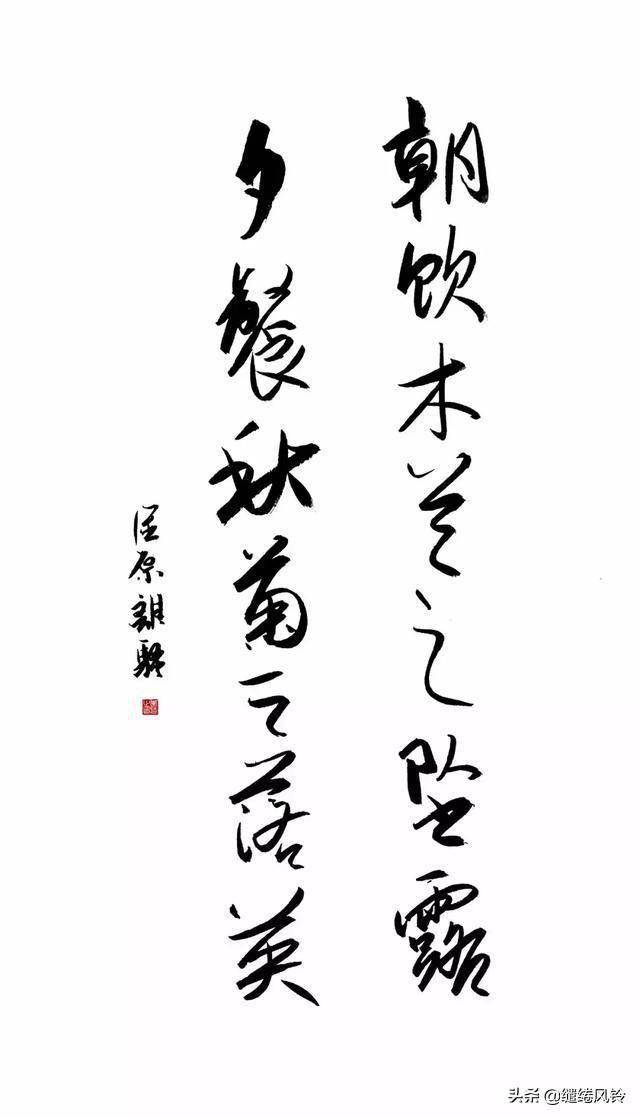 朝饮木兰之坠露
夕餐秋菊之落英
屈原離騒
头条@缱绻风铃